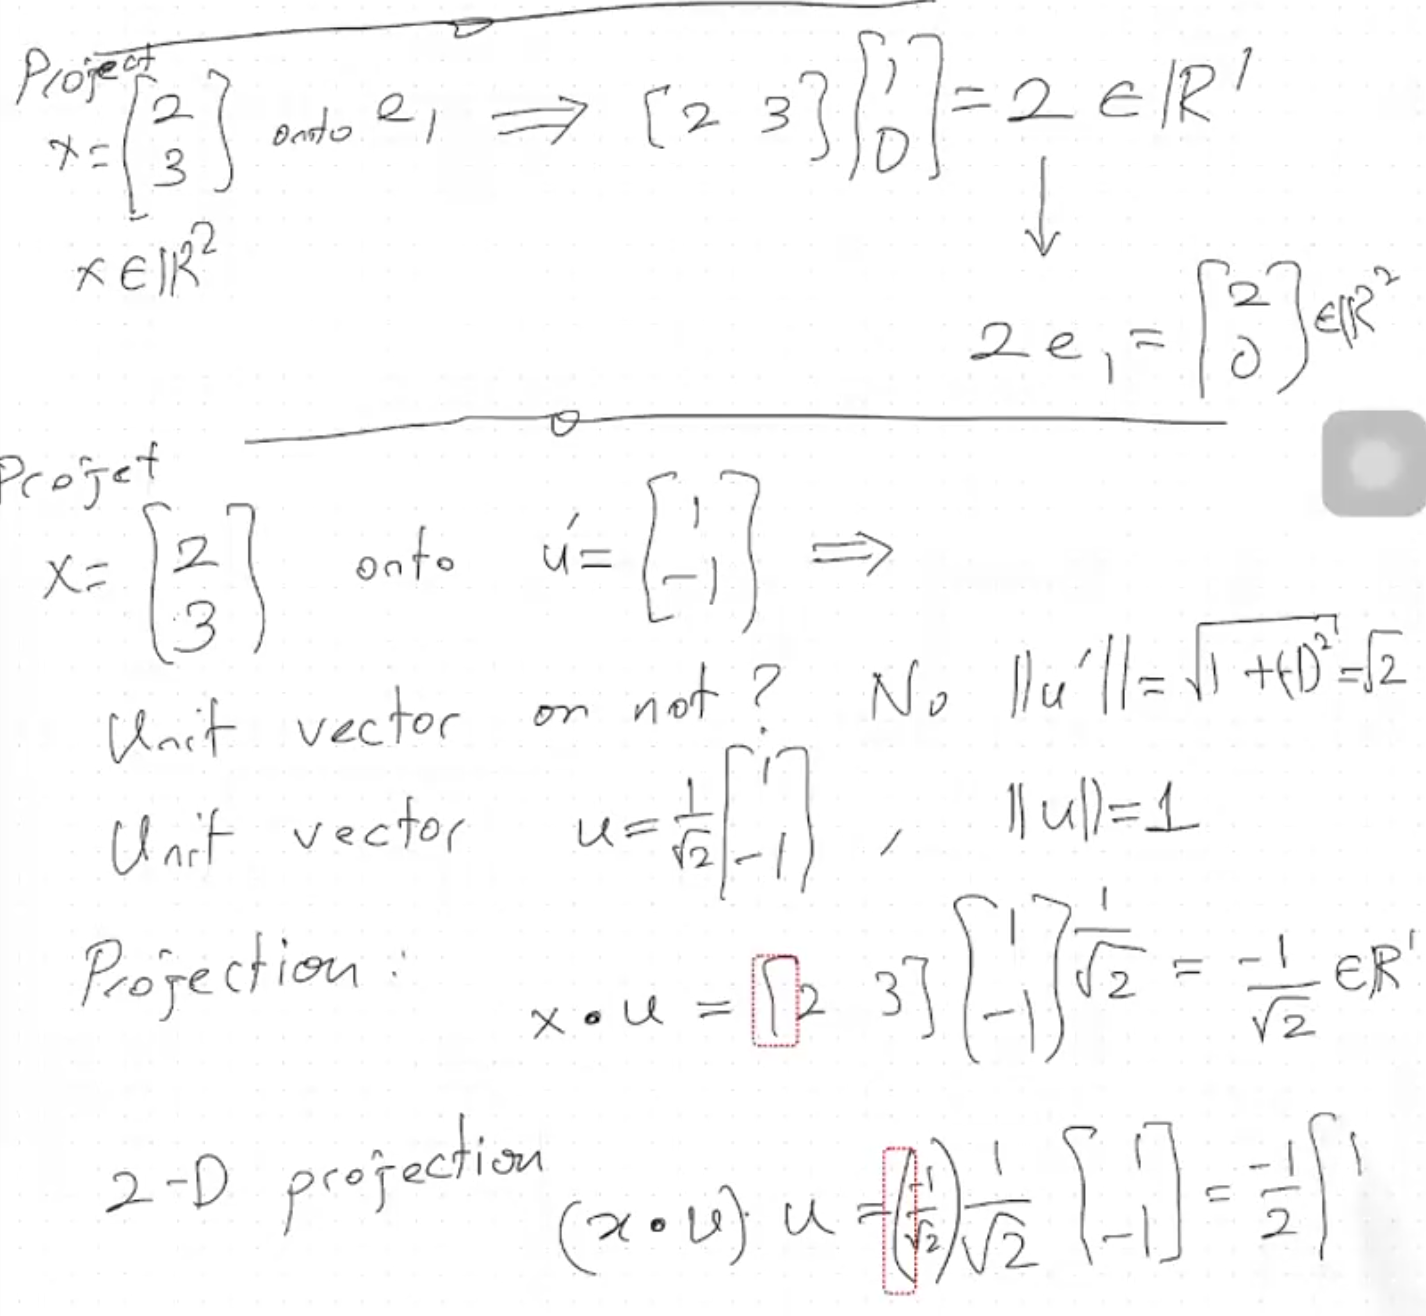 Project
x = [2 3] onto e₁ ⟹ [2 3] [1 0] = 2 ∈ ℝ¹
x ∈ ℝ²
↓
2 e₁ = [2 0] ∈ ℝ²
Projet
x = [2 3] onto u′ = [1 -1] ⟹
Unit vector or not? No ||u′|| = √(1 + (-1)²) = √2
Unit vector u = 1/√2 [1 -1] , ||u|| = 1
Projection: x • u = [2 3] [1 -1] 1/√2 = -1/√2 ∈ ℝ¹
2-D projection
(x • u) • u = (-1/√2) 1/√2 [1 -1] = -1/2 [1